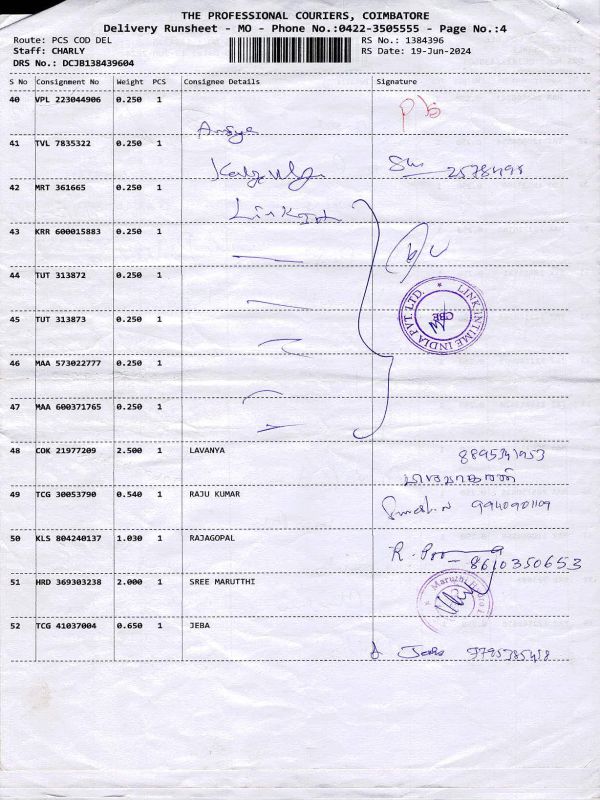 THE PROFESSIONAL COURIERS, COIMBATORE
Delivery Runsheet - MO - Phone No.:0422-3505555 - Page No.:4
Route: PCS COD DEL RS No.: 1384396
Staff: CHARLY RS Date: 19-Jun-2024
DRS No.: DCJB138439604
S No Consignment No Weight PCS Consignee Details Signature
40 VPL 223044906 0.250 1
41 TVL 7835322 0.250 1
42 MRT 361665 0.250 1
43 KRR 600015883 0.250 1
44 TUT 313872 0.250 1
45 TUT 313873 0.250 1
LINK INTIME INDIA PVT. LTD. CBE
46 MAA 573022777 0.250 1
47 MAA 600371765 0.250 1
48 COK 21977209 2.500 1 LAVANYA
49 TCG 30053790 0.540 1 RAJU KUMAR
9940901109
50 KLS 804240137 1.030 1 RAJAGOPAL
8610350653
51 HRD 369303238 2.000 1 SREE MARUTTHI
Maruthi
52 TCG 41037004 0.650 1 JEBA